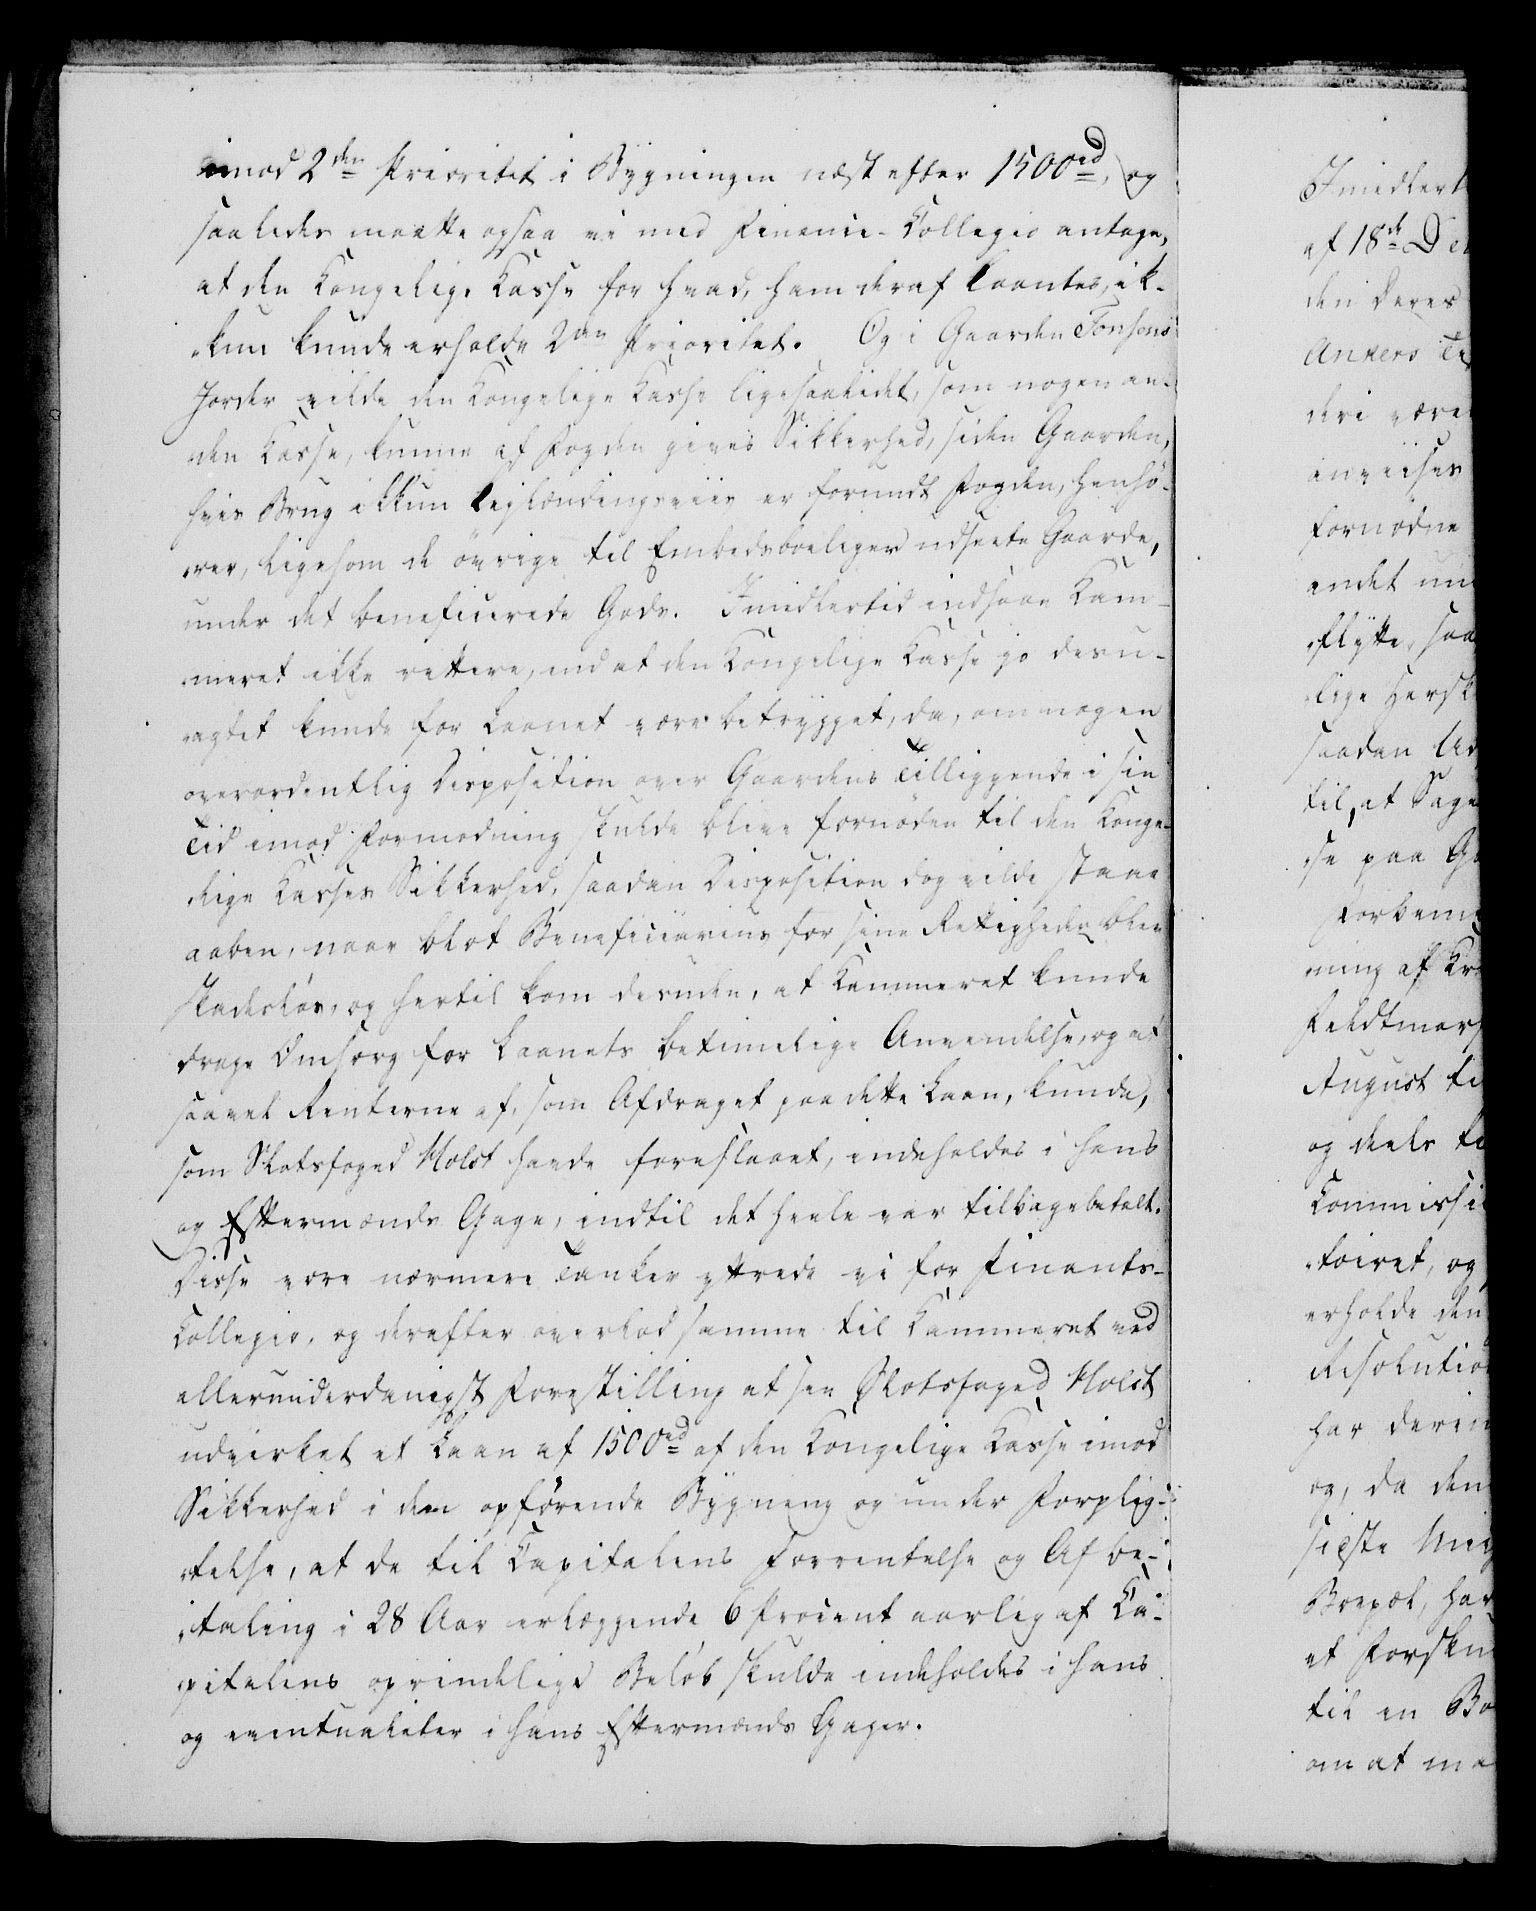 imod 2den Prioritet i Bygningen næst efter 1500rd, og
saaledes maatte ogsaa vi med Finants-Collegio antage,
at den Kongelige Kasse for hvad, ham deraf laantes, ik-
kun kunde erholde 2den Prioritet. Og i Gaarden Tonsens
Jorder vilde den Kongelige Kasse ligesaalidet, som nogen an-
den Kasse, kunne af Fogden gives Sikkerhed, siden Gaarden,
hvis Brug ikkun leylændingsviis er forundt Fogden, henhö-
rer, ligesom de övrige til Embedsboeliger udseete Gaarde,
under det beneficerede Gods. Imidlertid indsaae Kam-
meret ikke rettere, end at den Kongelige Kasse jo desu-
agtet kunde for Laanet være betrygget, da, om nogen
overordentlig Disposition over Gaardens Tilliggende i sin
Tid imod Formodning skulde blive fornöden til den Konge-
lige Kasses Sikkerhed, saadan Disposition dog vilde staae
aaben, naar blot Beneficiarius for sine Rettigheder blev
skadeslös, og hertil kom desuden, at Kammeret kunde
drage Omsorg for Laanets betimelige Anvendelse, og at
saavel Renterne af, som Afdraget paa dette Laan, kunde,
som Slotsfoged Holst havde foreslaaet, indeholdes i hans
og Eftermands Gage, indtil det heele var tilbagebetalt.
Disse vore nærmere Tanker yttrede vi for Finants-
Collegio, og derefter overlod samme til Kammeret ved
allerunderdanigst Forestilling at see Slotsfoged Holst
udvirket et Laan af 1500rd af den Kongelige Kasse imod
Sikkerhed i den opförende Bygning og under Forplig-
telse, at de til Capitalens Forrentelse og Afbe-
taling i 28 Aar erlæggende 6 Procent aarlig af Ca-
pitalens oprindelige Belöb skulde indeholdes i hans
og eventualiter i hans Eftermands Gager.
Imidlert
af 18de De
den deres
Ankers
deri være
anviises
fornødne
andet
flytte, saa
lige Hersk
saadan
til, at Sage
se paa G
forbem
ning af Kr
Feldtmars
August ti
og deels t
Commissi
toiret, og
erholde den
Resolutio
har derin
og, da den
sidste
et Forsku
til en Bo
om at ma